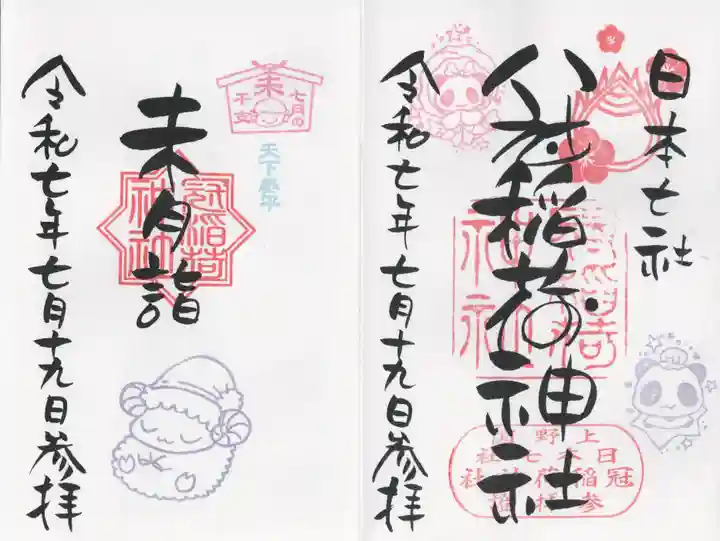 日本七社
八社稲荷神社
令和七年七月十九日参拝
上野國
日本七社
冠稲荷神社
参拝
未月詣
冠稲荷
神社
未
七月の
天下泰平
令和七年七月十九日参拝